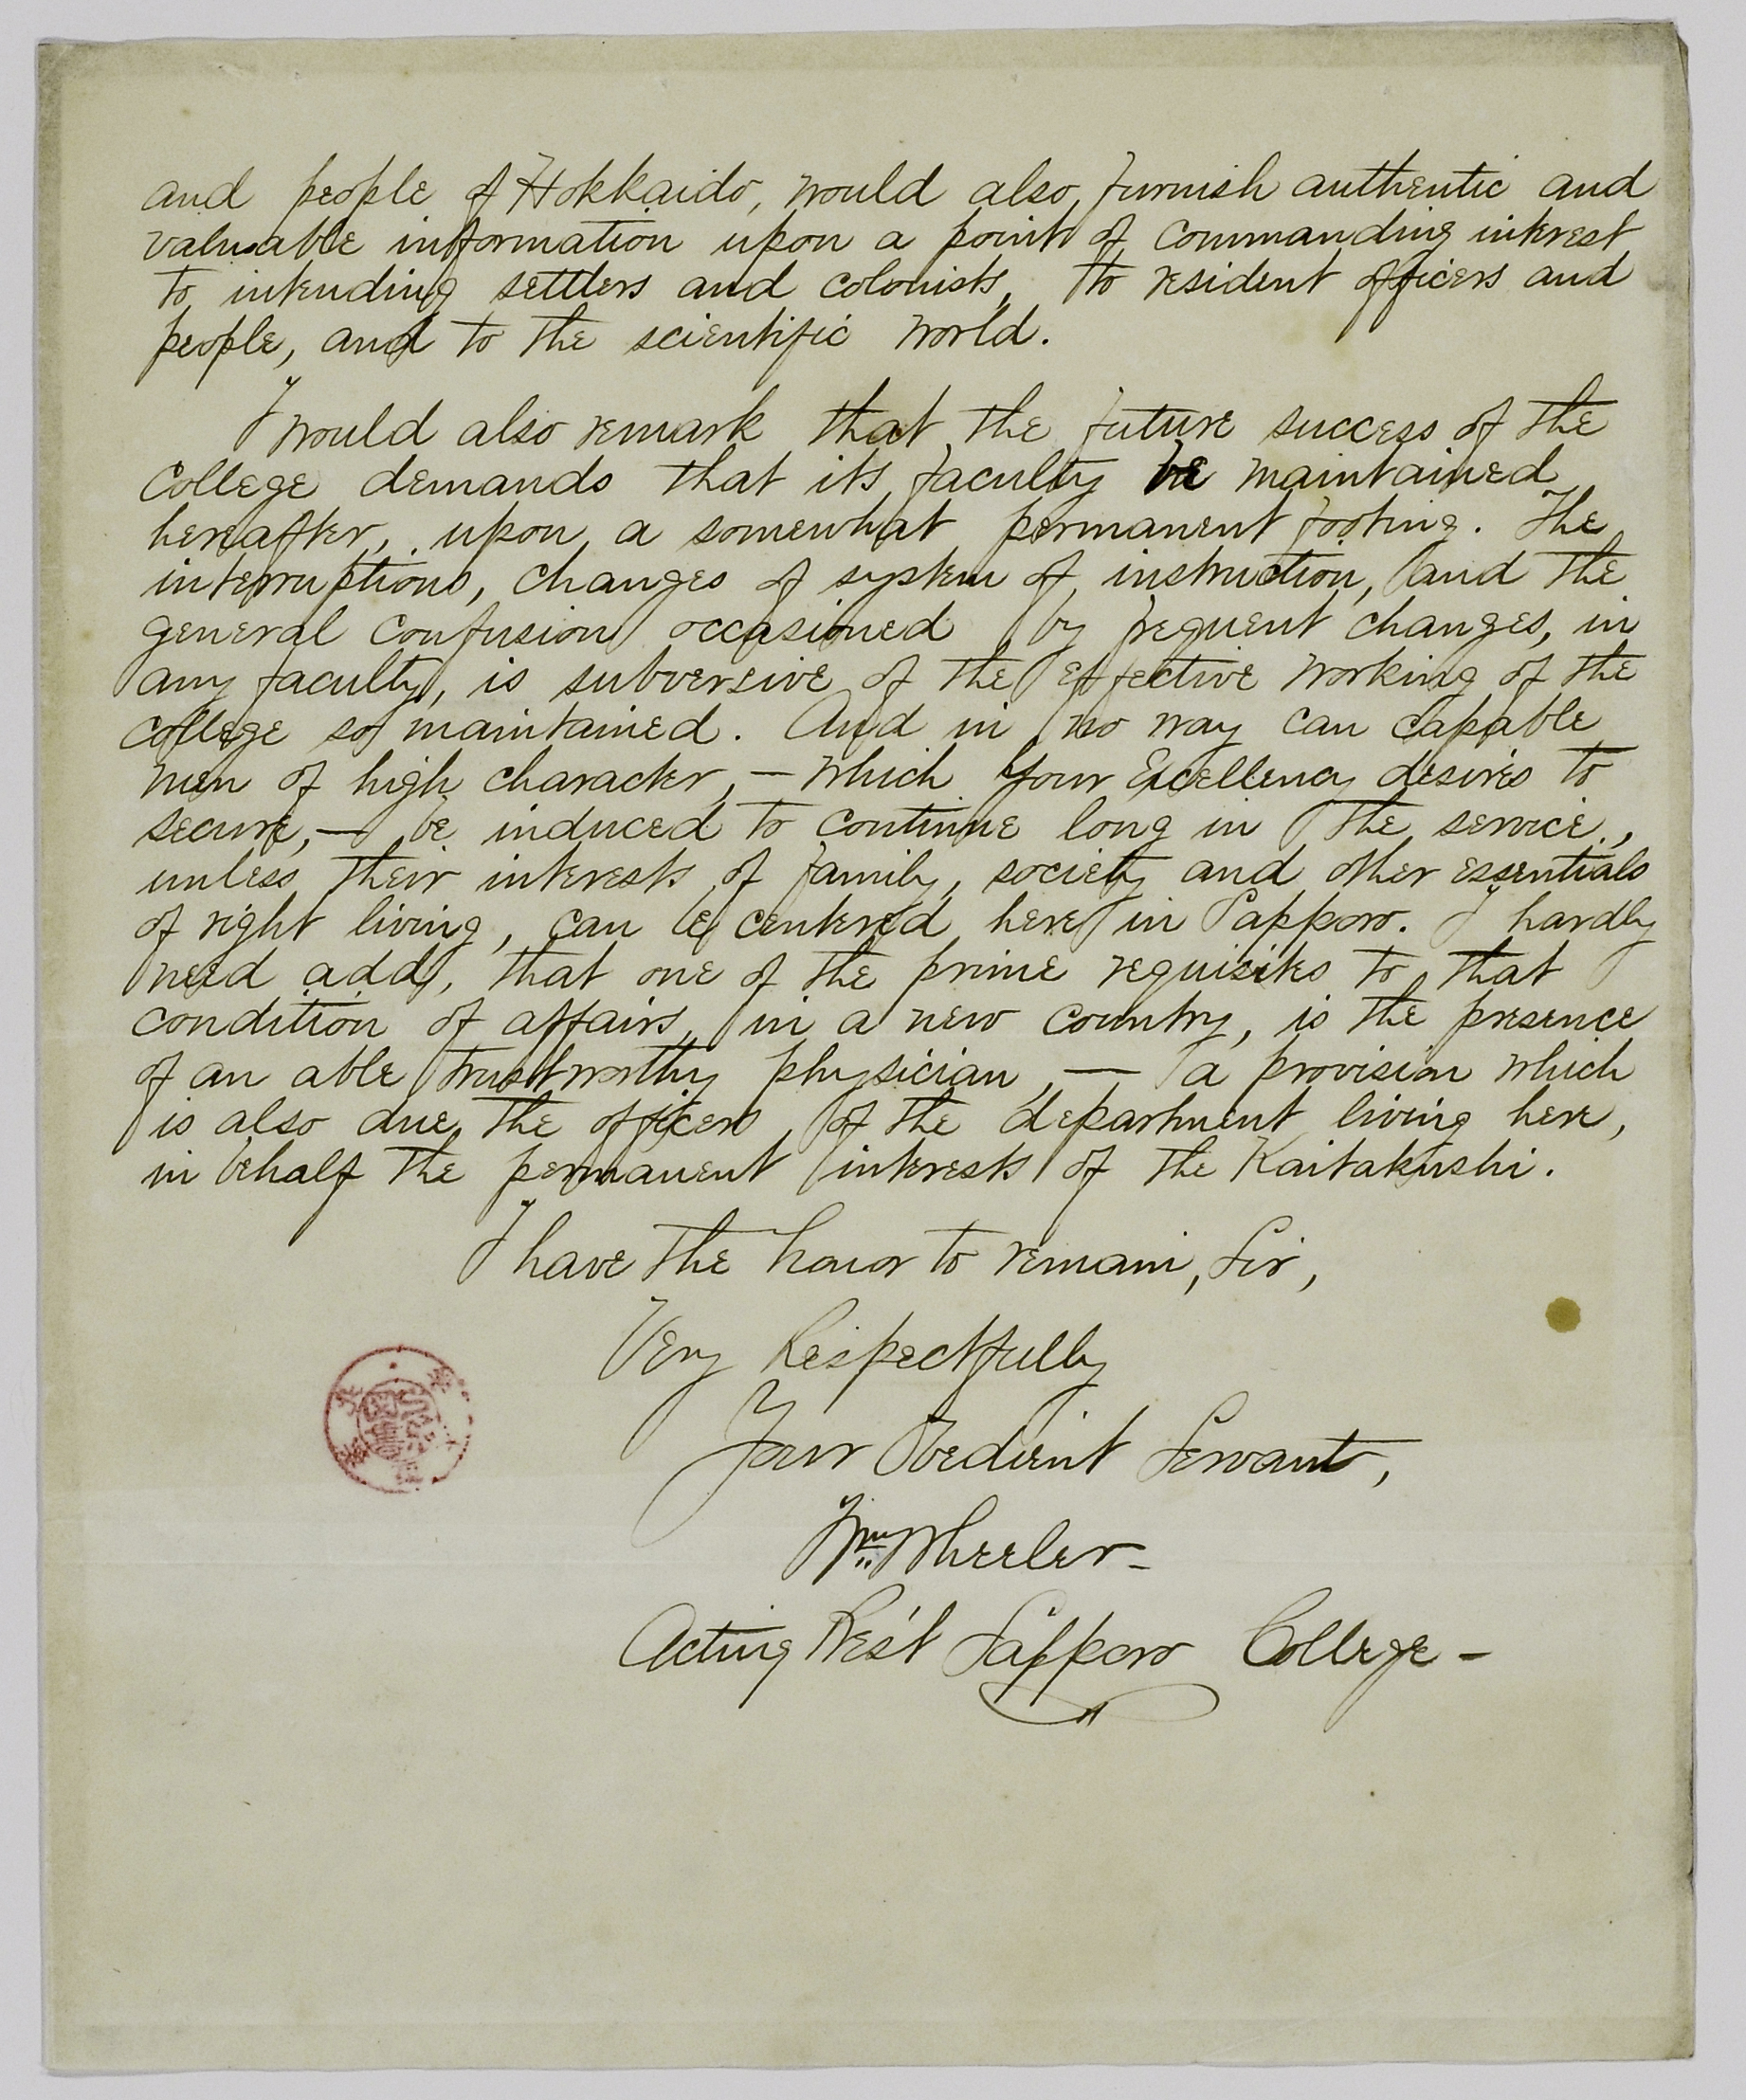 and people of Hokkaido, would also, furnish authentic and
valuable information upon a point of commanding interest
to intending settlers and colonists, to resident officers and
people, and to the scientific world.
I would also remark that the future success of the
College demands that its faculty be maintained
hereafter, upon a somewhat permanent footing. The
interruptions, changes of system of instruction, and the
general confusion occasioned by frequent changes, in
any faculty, is subversive of the effective working of the
college so maintained. And in no way can capable
men of high character, — which Your Excellency desires to
secure, — be induced to continue long in the service,
unless their interests of family, society and other essentials
of right living, can be centered here in Sapporo. I hardly
need add, that one of the prime requisites to that
condition of affairs, in a new country, is the presence
of an able trustworthy physician, — a provision which
is also due the officers of the department living here,
in behalf the permanent interests of the Kaitakushi.
I have the honor to remain, Sir,
Very Respectfully
Your Obedient Servant,
Wm Wheeler –
Acting Pres't Sapporo College –